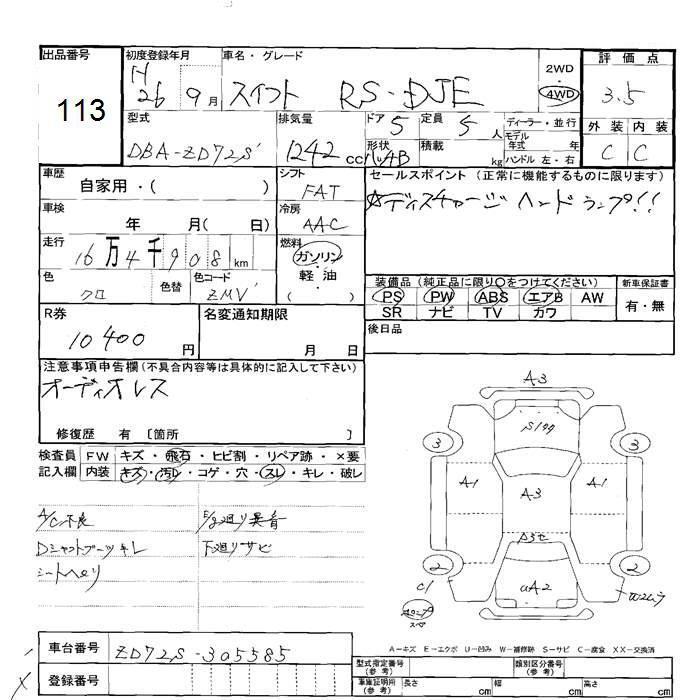 出品番号
113
初度登録年月
H
26 9月
車名・グレード
スイフト RS-DJE
2WD
・
4WD
評価点
3.5
外装 内装
C C
型式
DBA-ZD72S
排気量
1242 cc
ドア 5
形状
定員 5 人
積載 kg
ディーラー・並行
モデル
年式 年
ハンドル 左・右
車歴
自家用・( )
シフト
FAT
車検
年 月( 日)
冷房
AAC
走行
16万4千908km
燃料
ガソリン・
軽油・
( )
色
クロ
色替
色コード
ZMV
セールスポイント(正常に機能するものに限ります)
☆ディスチャージ ヘッドランプ!!
装備品(純正品に限り○をつけてください)
PS PW ABS エアB AW
SR ナビ TV カワ
新車保証書
有・無
後日品
R券
10400 円
名変通知期限
月 日
注意事項申告欄(不具合内容等は具体的に記入して下さい)
オーディオレス
修復歴 有 〔箇所 〕
検査員
記入欄
FW キズ・飛石・ヒビ割・リペア跡・×要
内装 キズ・汚レ・コゲ・穴・スレ・キレ・破レ
A/C不良
E/g廻り異音
Dシャフトブーツキレ
下廻りサビ
シートヘタリ
A3
S177
3 3
A1 A3 A1
2 2
UA2
C1
スペ
A-キズ E-エクボ U-凹み W-補修跡 S-サビ C-腐食 XX-交換済
車台番号
ZD72S-305585
登録番号
型式指定番号
(参考)
類別区分番号
(参考)
車庫証明用
(参考)
長さ cm 幅 cm 高さ cm